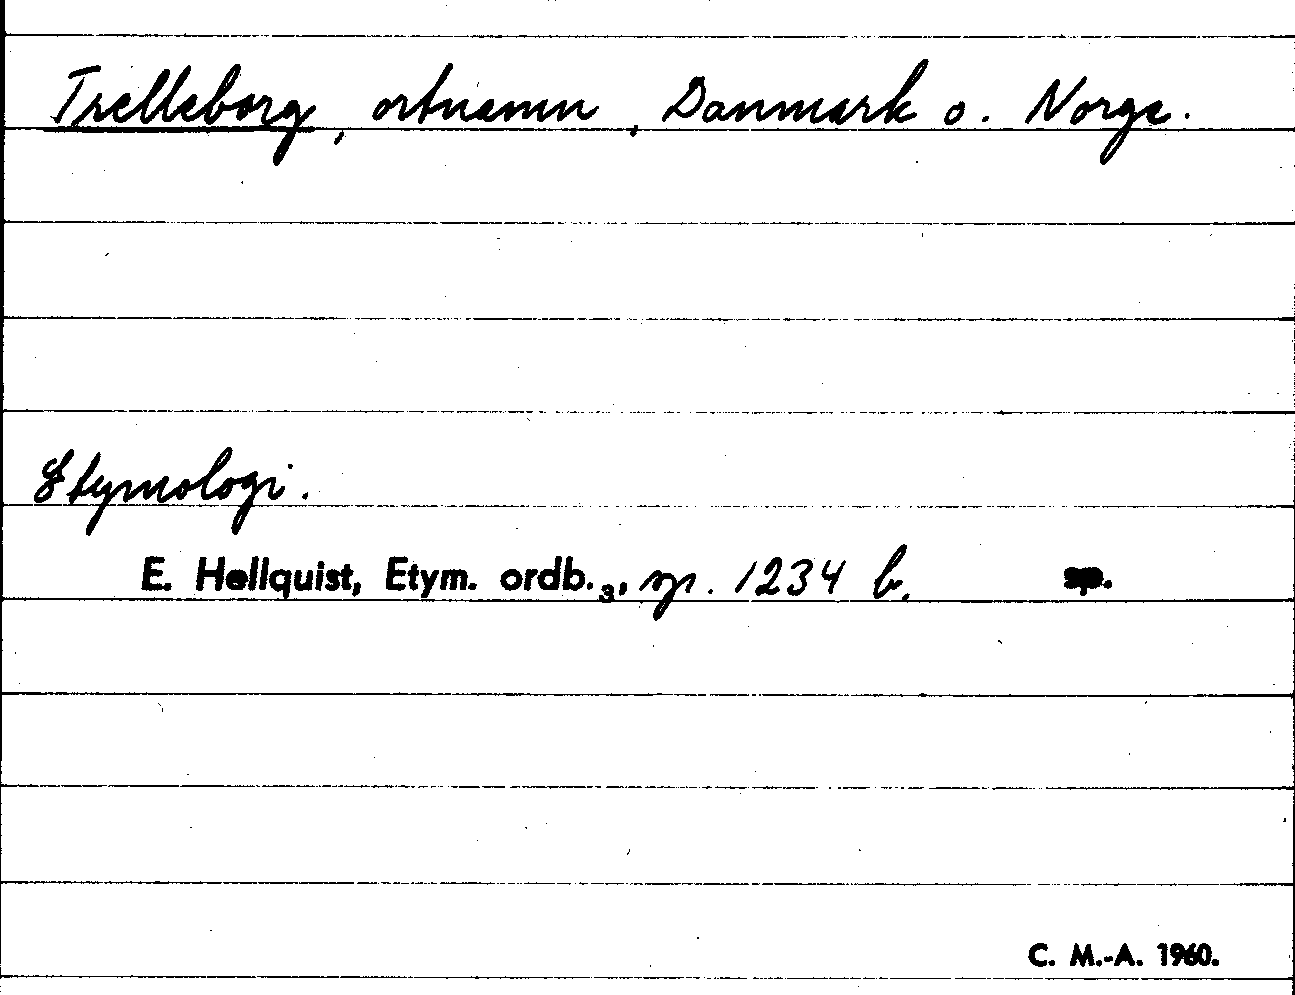 Trelleborg, ortnamn, Danmark o. Norge.
Etymologi.
E. Hellquist, Etym. ordb.₃, sp. 1234 b. sp.
C. M.-A. 1960.